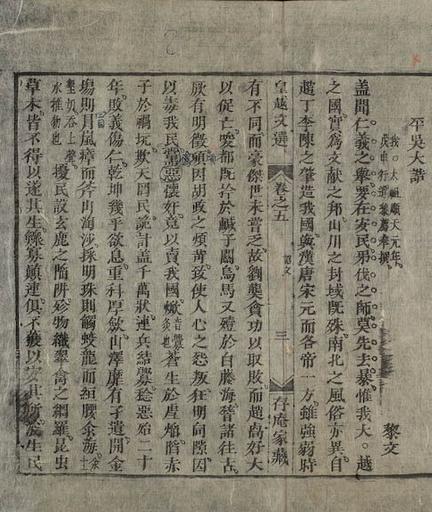 平吳大誥
太祖順天元年。
黎文
盖聞仁義之舉要在安民弔伐之師莫先去暴惟我大。越
之國實爲文献之邦山川之封域既殊南北之風俗亦異自
趙丁李陳之肇造我國與漢唐宋元而各帝一方。雖強弱時
皇越文選
卷之五
三
存庵家藏
有不同而豪傑世未嘗乏故劉龑貪功以取敗而趙卨好大
以促亡唆都既擒於鹹子關烏馬又殪於白藤海稽諸徃古
厥有明徵頃因胡政之煩苛致使人心之怨叛狂明向隙因
以毒我民黨惡懷奸竟以賣我國焮蒼生於虐焰陷赤
子於禍坑欺天罔民詭計盖千萬狀連兵結釁稔惡殆二十
年敗義傷仁乾坤幾乎欲息重科厚歛山澤靡有孑遺開金
塲則冒嵐瘴而斧山淘沙採明珠則觸蛟龍而緪腰汆海
擾民設玄鹿之陷阱殄物織翠禽之網羅昆虫
草木皆不得以遂其生鰥寡顛連俱不獲以安其所浚生民